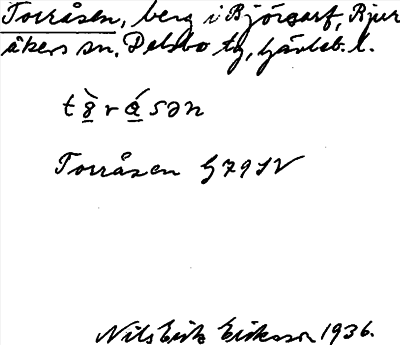 Torråsen, berg i Björsarf, Bjur
åkers sn, Delsbo tg, Gävleb. l.
tò̱rá̱sən
Torråsen G79SV
Nils Erik Eriksson 1936.